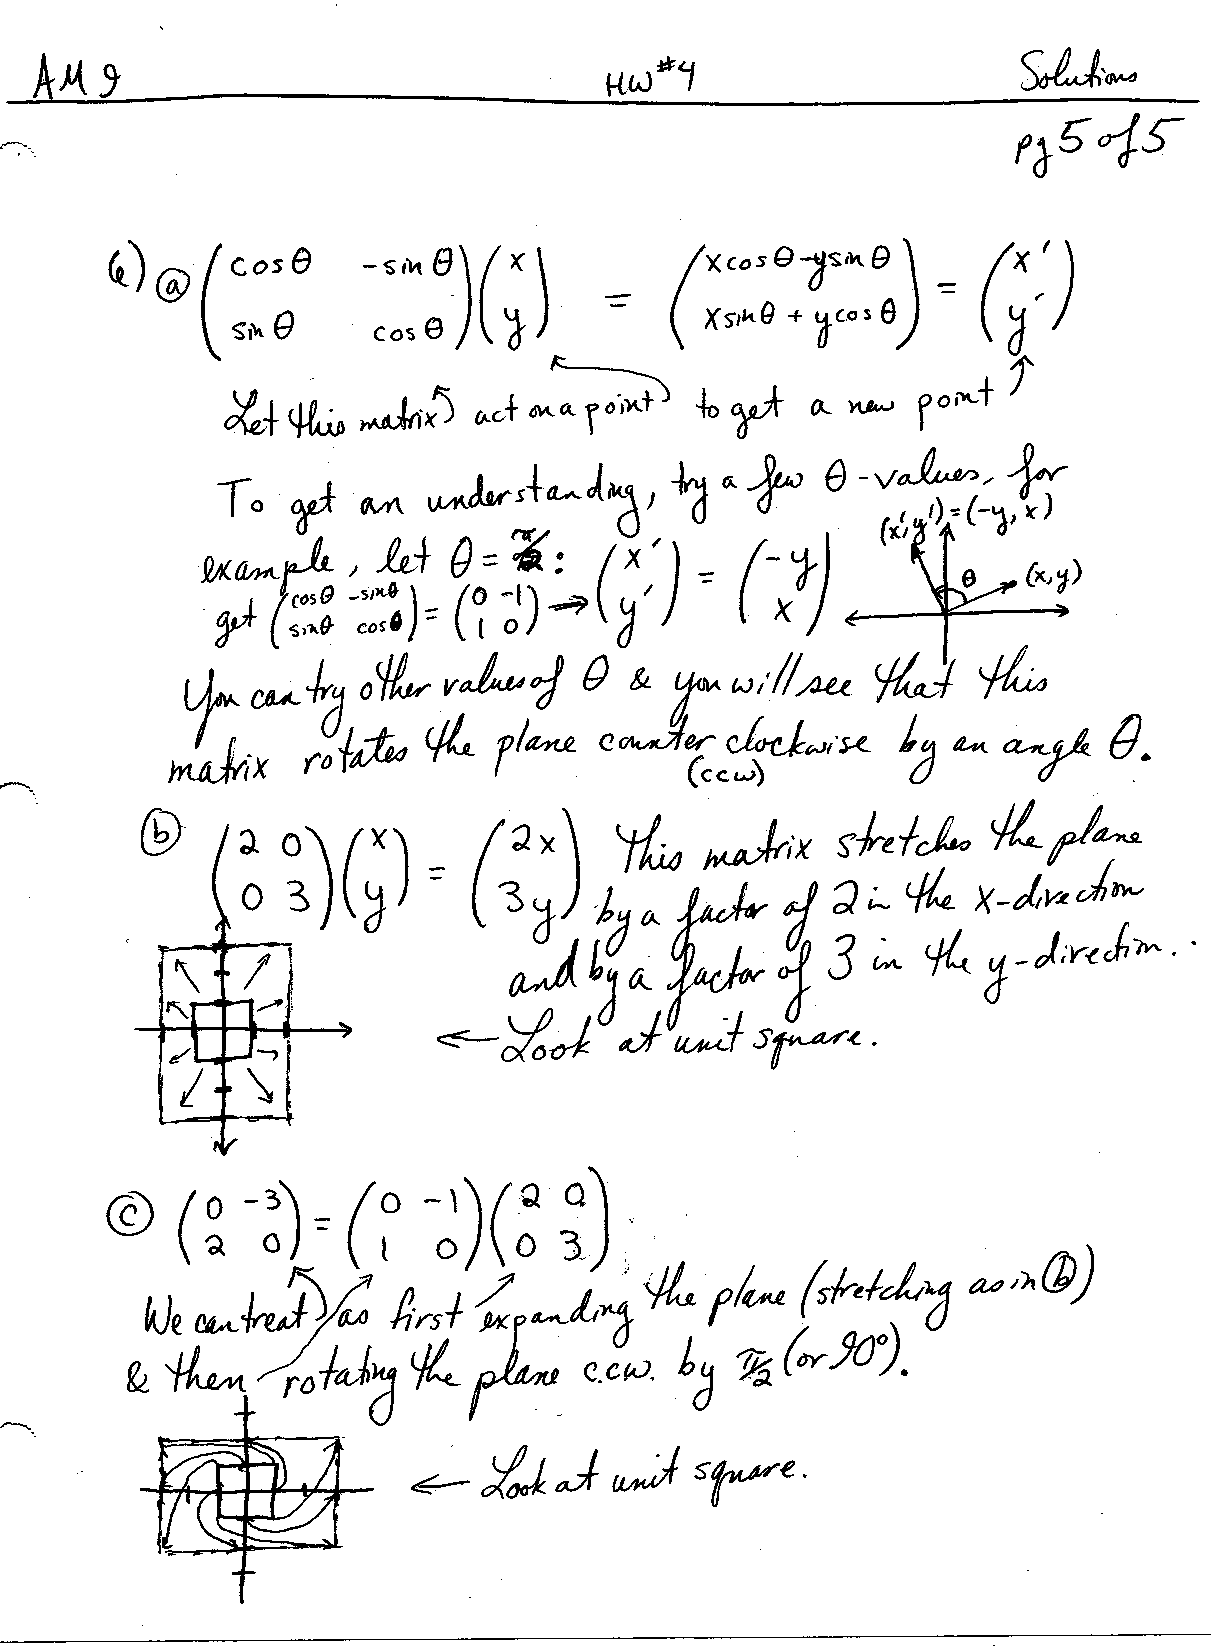 AM 9 HW #4 Solutions
pg 5 of 5
6) ⓐ (cosθ -sinθ; sinθ cosθ)(x; y) = (xcosθ-ysinθ; xsinθ + ycosθ) = (x'; y')
Let this matrix act on a point to get a new point
To get an understanding, try a few θ-values, for
example, let θ = π/2: (x'; y') = (-y; x)
(x',y') = (-y, x)
θ (x,y)
get (cosθ -sinθ; sinθ cosθ) = (0 -1; 1 0) →
You can try other values of θ & you will see that this
matrix rotates the plane counter clockwise by an angle θ.
(ccw)
ⓑ (2 0; 0 3)(x; y) = (2x; 3y) This matrix stretches the plane
by a factor of 2 in the x-direction
and by a factor of 3 in the y-direction.
← Look at unit square.
ⓒ (0 -3; 2 0) = (0 -1; 1 0)(2 0; 0 3)
We can treat as first expanding the plane (stretching as in ⓑ)
& then rotating the plane c.cw. by π/2 (or 90°).
← Look at unit square.